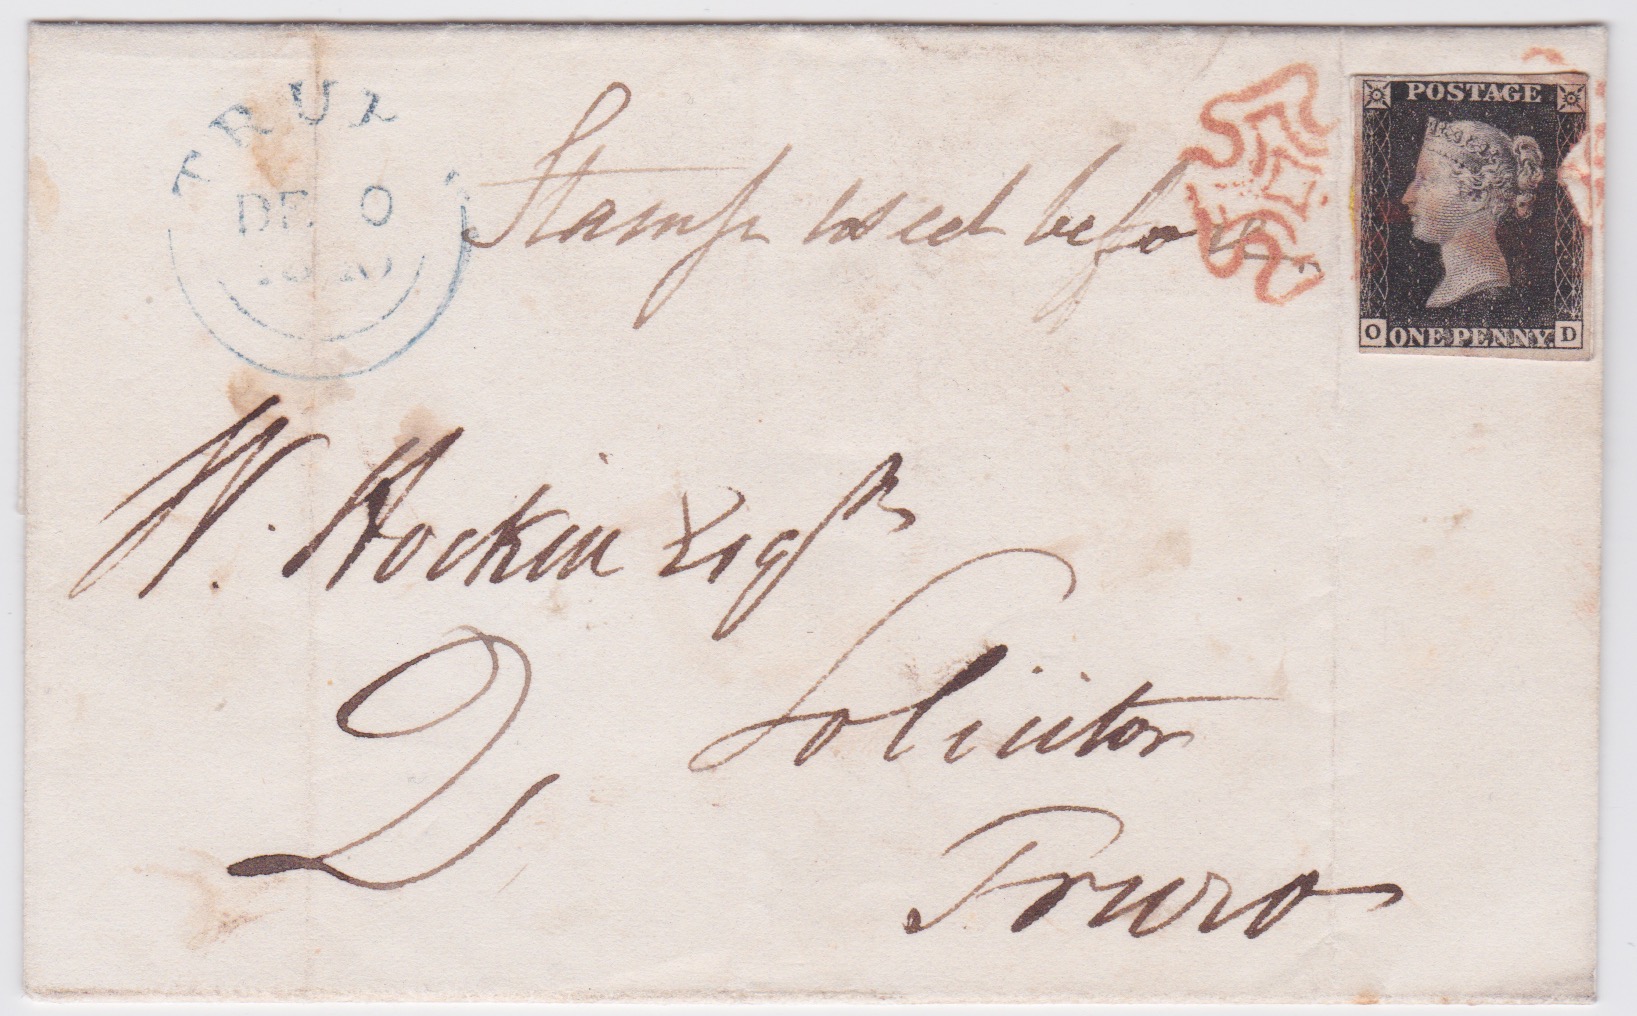 TRURO
DE 0
Stamp used before
POSTAGE
O ONE PENNY. D
W. Hockin Esqr
2 Solicitor
Truro